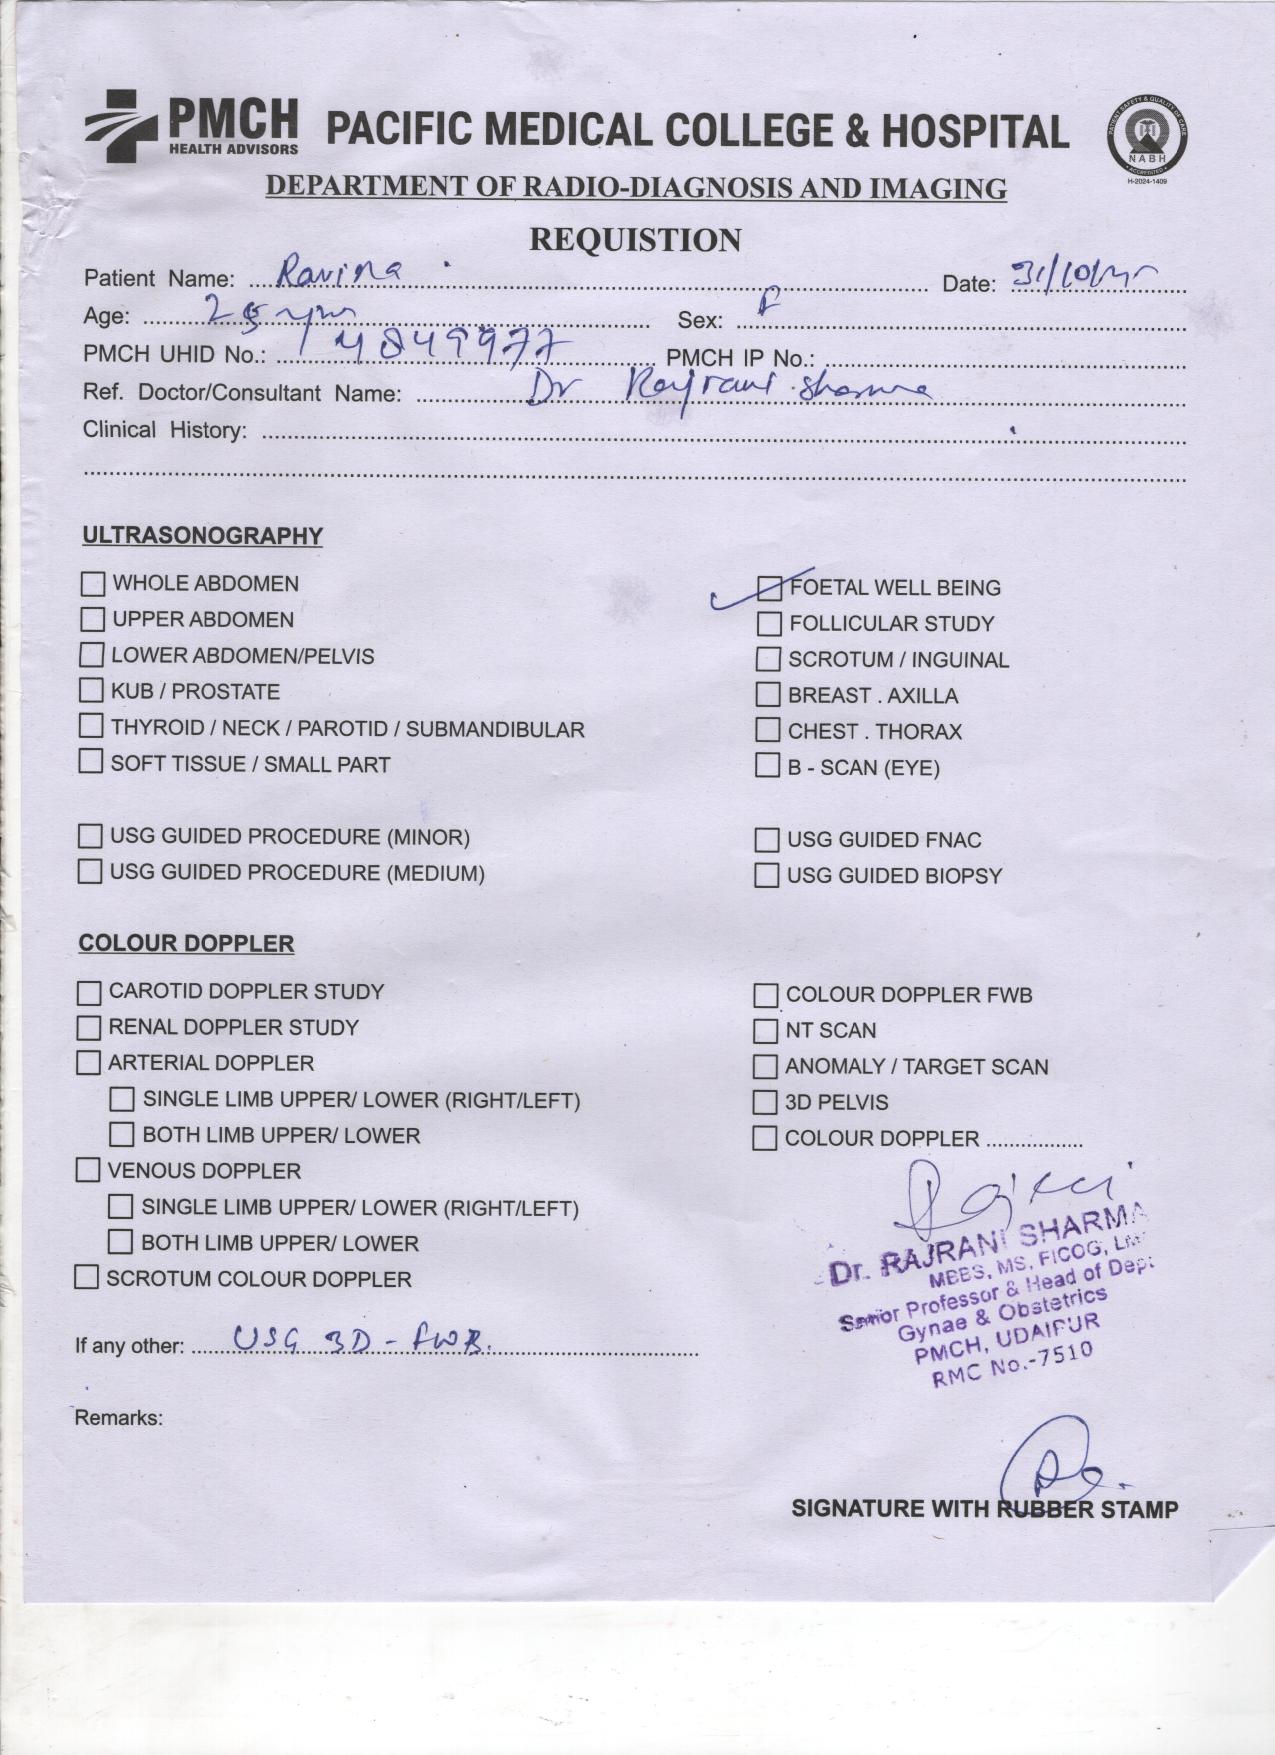 PMCH
HEALTH ADVISORS
PACIFIC MEDICAL COLLEGE & HOSPITAL
PATIENT SAFETY & QUALITY OF CARE
NABH
ACCREDITED
H-2024-1409
DEPARTMENT OF RADIO-DIAGNOSIS AND IMAGING
REQUISTION
Patient Name: Ravina Date: 31/10/
Age: Sex: F
PMCH UHID No.: PMCH IP No.:
Ref. Doctor/Consultant Name: Dr Rajrani Sharma
Clinical History:
ULTRASONOGRAPHY
WHOLE ABDOMEN
UPPER ABDOMEN
LOWER ABDOMEN/PELVIS
KUB / PROSTATE
THYROID / NECK / PAROTID / SUBMANDIBULAR
SOFT TISSUE / SMALL PART
USG GUIDED PROCEDURE (MINOR)
USG GUIDED PROCEDURE (MEDIUM)
FOETAL WELL BEING
FOLLICULAR STUDY
SCROTUM / INGUINAL
BREAST . AXILLA
CHEST . THORAX
B - SCAN (EYE)
USG GUIDED FNAC
USG GUIDED BIOPSY
COLOUR DOPPLER
CAROTID DOPPLER STUDY
RENAL DOPPLER STUDY
ARTERIAL DOPPLER
SINGLE LIMB UPPER/ LOWER (RIGHT/LEFT)
BOTH LIMB UPPER/ LOWER
VENOUS DOPPLER
SINGLE LIMB UPPER/ LOWER (RIGHT/LEFT)
BOTH LIMB UPPER/ LOWER
SCROTUM COLOUR DOPPLER
COLOUR DOPPLER FWB
NT SCAN
ANOMALY / TARGET SCAN
3D PELVIS
COLOUR DOPPLER .................
If any other: USG 3D - FWB.
Dr. RAJRANI SHARMA
MBBS, MS, FICOG,
Senior Professor & Head of Dept
Gynae & Obstetrics
PMCH, UDAIPUR
RMC No.-7510
Remarks:
SIGNATURE WITH RUBBER STAMP